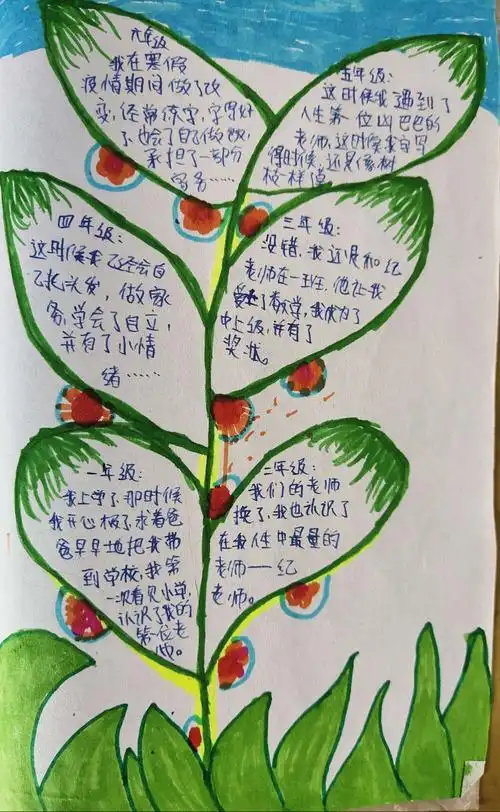 六年级
我在寒假
疫情期间做了改
变,经常练字,字写好
了,也会了自己做饭,
承担了一部分
家务……
五年级:
这时候我遇到了
人生第一位凶巴巴的
老师,这时候我字写
得时候,还是像树
枝一样渣
四年级:
这时候我已经会自
己扎头发,做家
务,学会了自立,
并有了小情
绪……
三年级:
没错,我还是和纪
老师在一班,他让我
爱上了数学,我成为了
中上级,并有了
奖状。
一年级:
我上学了,那时候
我开心极了,求着爸
爸早早地把我带
到学校,我第
一次看见小学,
认识了我的
第一位老
师。
二年级:
我们的老师
换了,我也认识了
在我人生中最量的
老师——纪
老师。